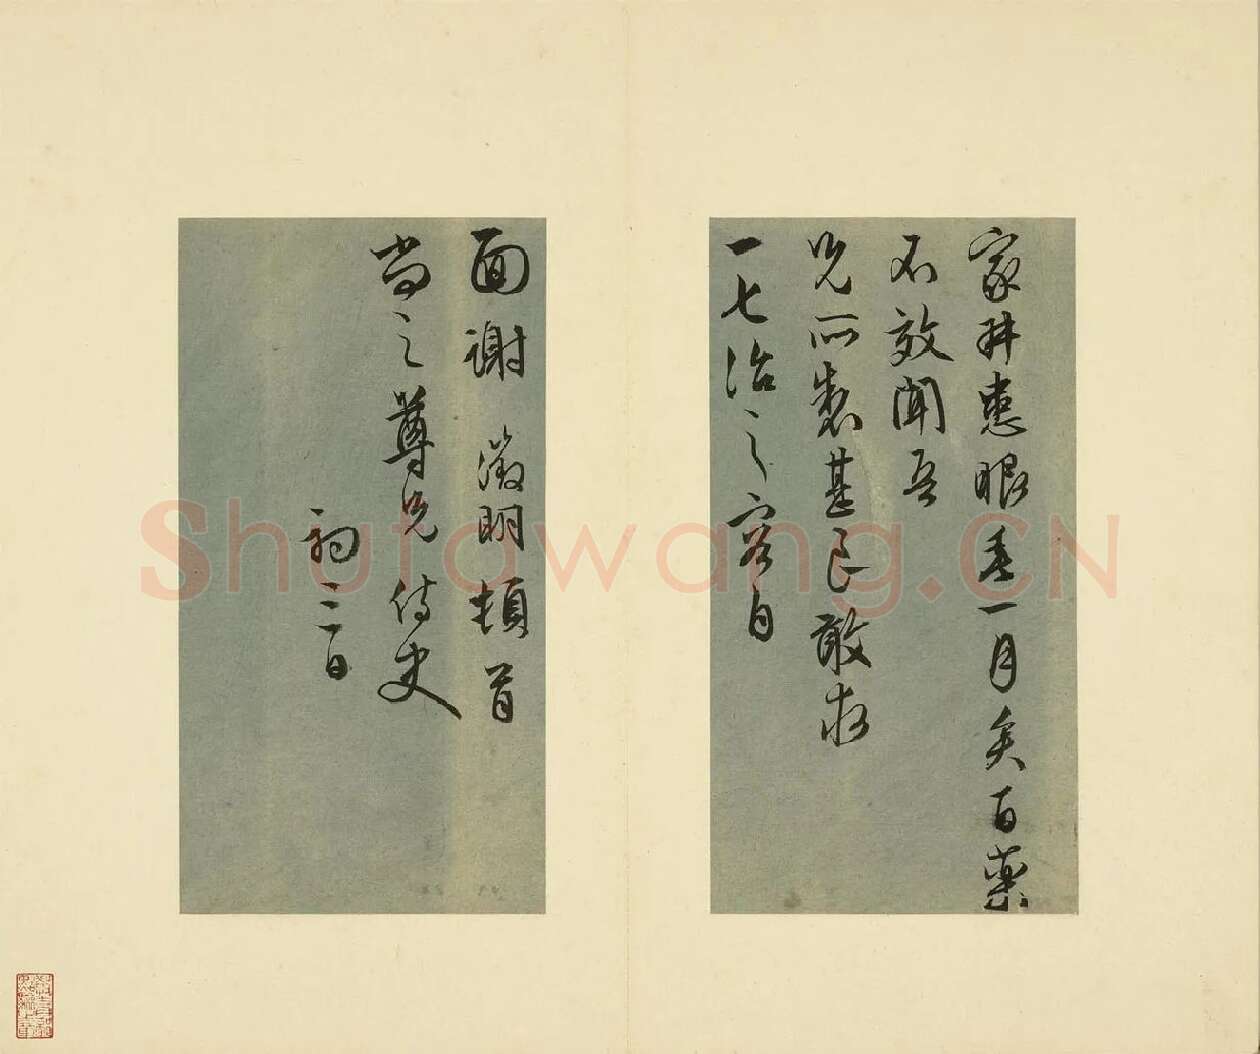 家姊患眼、一月矣百藥
不效聞吾
兄所製甚良敢求
一七治之容日
面謝 徵明頓首
尚之尊兄侍史
初三日
Shufawang.CN